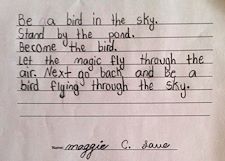 Be a bird in the sky.
Stand by the pond.
Become the bird.
Let the magic fly through the
air. Next go back and Be a
bird flying through the sky.
— maggie C.